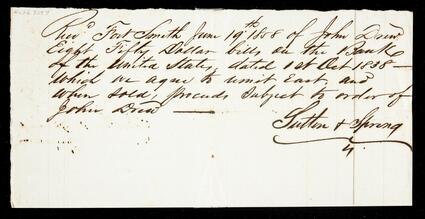 Rec'd Fort Smith June 19th 1858 of John Drew
Eight Fifty Dollar bills on the Bank
of the United States, dated 1st Oct 1838 —
which we agree to remit East, and
when sold, proceeds subject to order of
John Drew —
Sutton & Spring